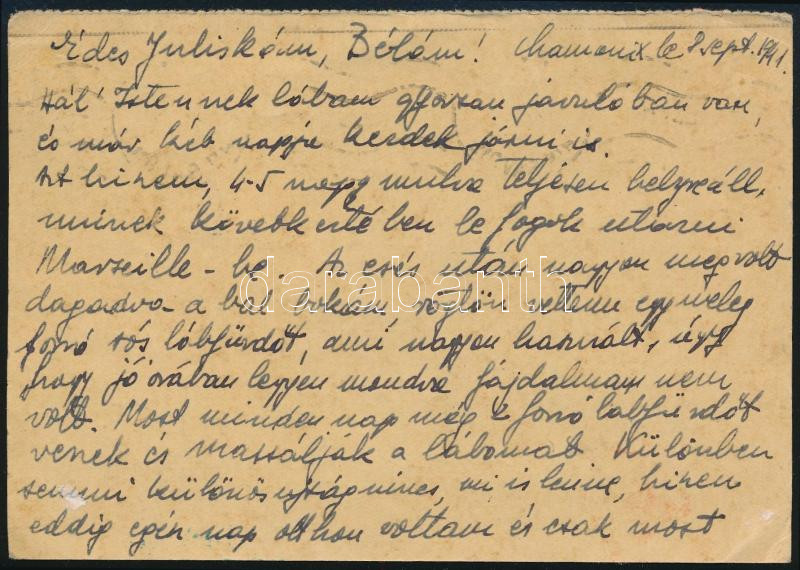 Édes Juliskám, Bélám! Chamonix le 8 sept. 1941.
Hál' Istennek lábam gyorsan javulóban van,
és már két napja kezdek járni is.
Azt hiszem, 4-5 nap mulva teljesen helyreáll,
minek következtében le fogok utazni
Marseille-be. Az esés után nagyon meg volt
dagadva a bal bokám, rögtön vettem egy meleg
forró sós lábfürdőt, ami nagyon használt, úgy
hogy jóformán legyen mondva fájdalmam nem
volt. Most minden nap még 2 forró lábfürdőt
veszek és masszálják a lábamat. Különben
semmi különös ujság nincs, mi is lenne, hiszen
eddig egész nap otthon voltam és csak most
darabanth